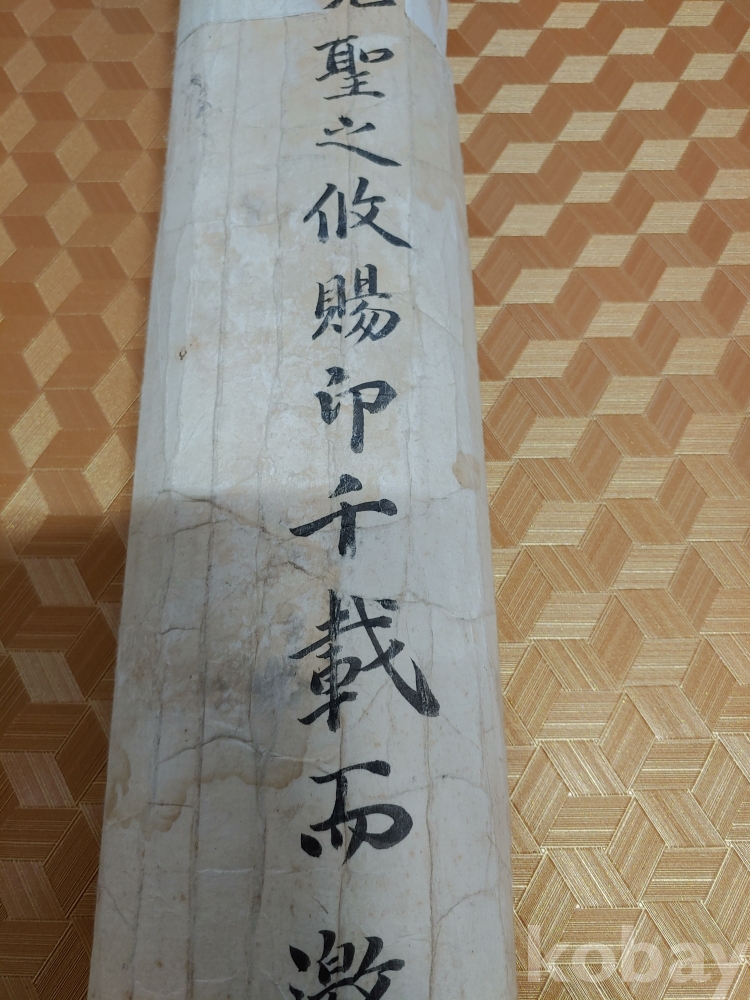 聖之攸賜印千載而
kobay